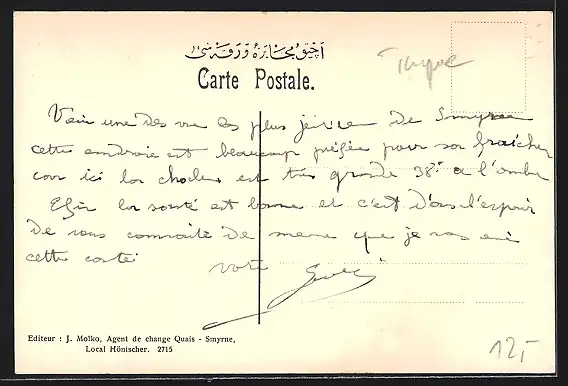 آچیق مخابره ورقه سی
Carte Postale.
Turquie
Voici une des vue les plus jolie de Smyrne
cette endroit est beaucoup préférée pour sa fraicheur
car ici la chaleur est très grande 38° a l'ombre
la santé est bonne et c'est dans l'espoir
de vous connaitre de meme que je vous envoi
cette carte
votre
Editeur : J. Molko, Agent de change Quais - Smyrne,
Local Hönischer. 2715
12,-